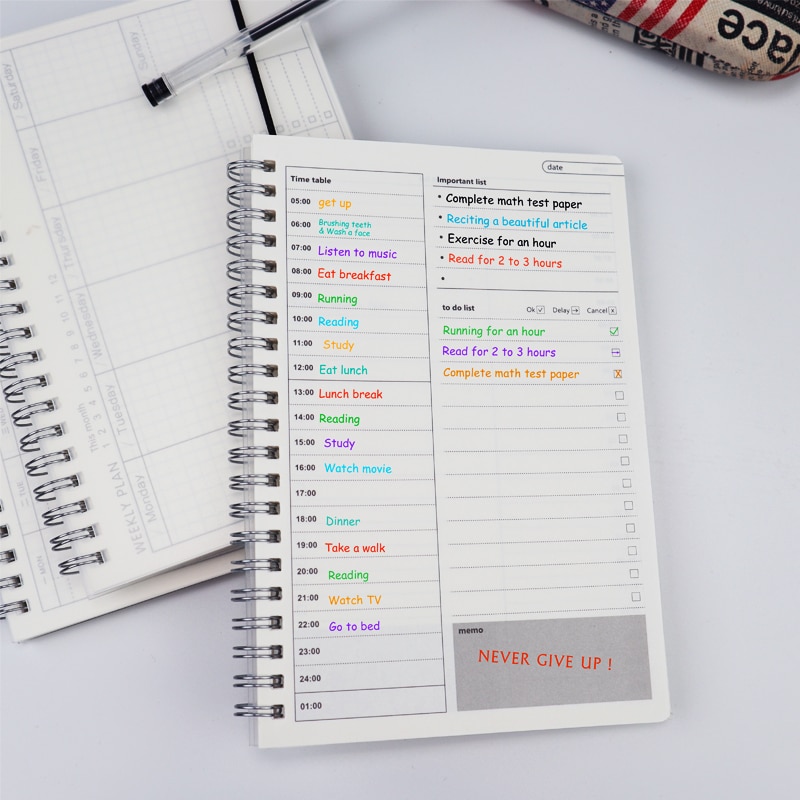 date
Time table
05:00 get up
06:00 Brushing teeth
& Wash a face
07:00 Listen to music
08:00 Eat breakfast
09:00 Running
10:00 Reading
11:00 Study
12:00 Eat lunch
13:00 Lunch break
14:00 Reading
15:00 Study
16:00 Watch movie
17:00
18:00 Dinner
19:00 Take a walk
20:00 Reading
21:00 Watch TV
22:00 Go to bed
23:00
24:00
01:00
Important list
• Complete math test paper
• Reciting a beautiful article
• Exercise for an hour
• Read for 2 to 3 hours
•
to do list Ok Delay Cancel
Running for an hour
Read for 2 to 3 hours
Complete math test paper
memo
NEVER GIVE UP !
WEEKLY PLAN
This month
1 2 3 4 5 6 7 8 9 10 11 12
/ Monday
/ Tuesday
/ Wednesday
/ Thursday
Friday
/ Saturday
Sunday
lace